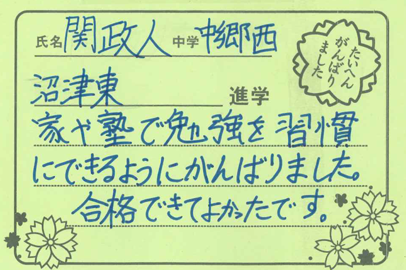 氏名 関政人 中学 中郷西
たいへん
がんばり
ました
沼津東 進学
家や塾で勉強を習慣
にできるようにがんばりました。
合格できてよかったです。